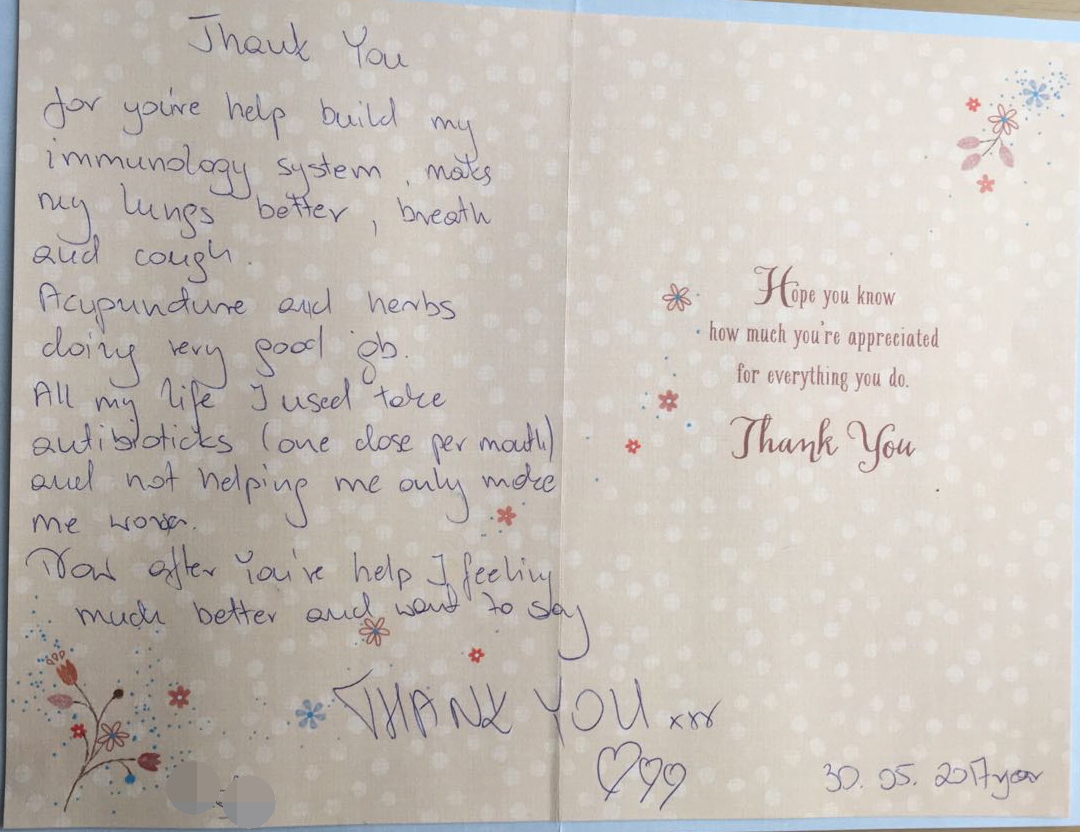 Thank You
for you've help build my
immunology system, maks
my lungs better, breath
and cough.
Acupuncture and herbs
doing very good job.
All my life I used take
antibioticks (one dose per mouth)
and not helping me only make
me worse.
Now after You've help I feeling
much better and want to say
THANK YOU xxx
Hope you know
how much you're appreciated
for everything you do.
Thank You
30. 05. 2017 year